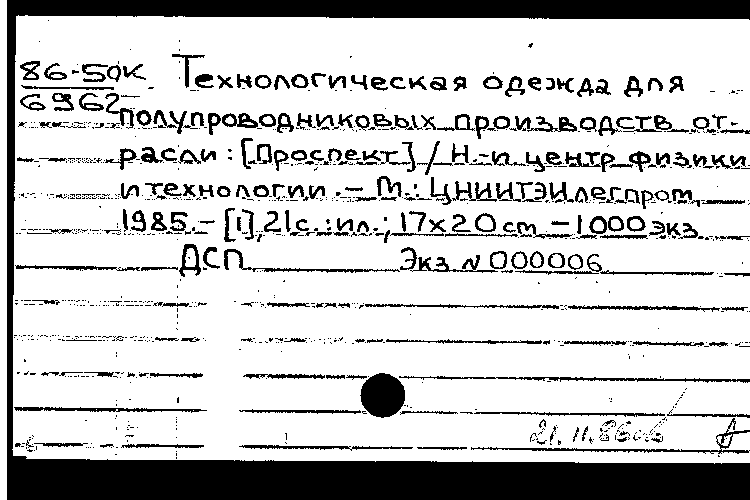 86-50к
6962
Технологическая одежда для
полупроводниковых производств от-
расли : [Проспект] / Н.-и. центр физики
и технологии. – М.: ЦНИИТЭИлегпром,
1985. – [1], 21с. : ил. ; 17х20 cm – 1000 экз
ДСП Экз N 000006
21.11.86